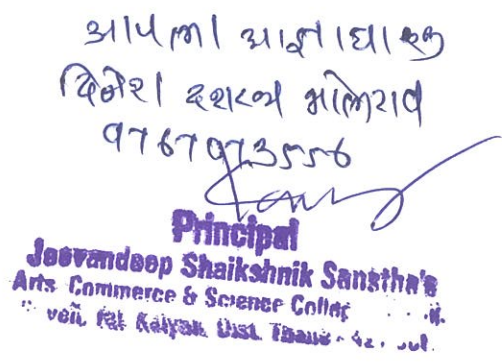 आपला आज्ञाधारक
दिनेश दशरथ भालेराव
9767973556
Principal
Jeevandeep Shaikshnik Sanstha's
Arts Commerce & Science Colleg
Tal. Kalyan. Dist. Thane - 421